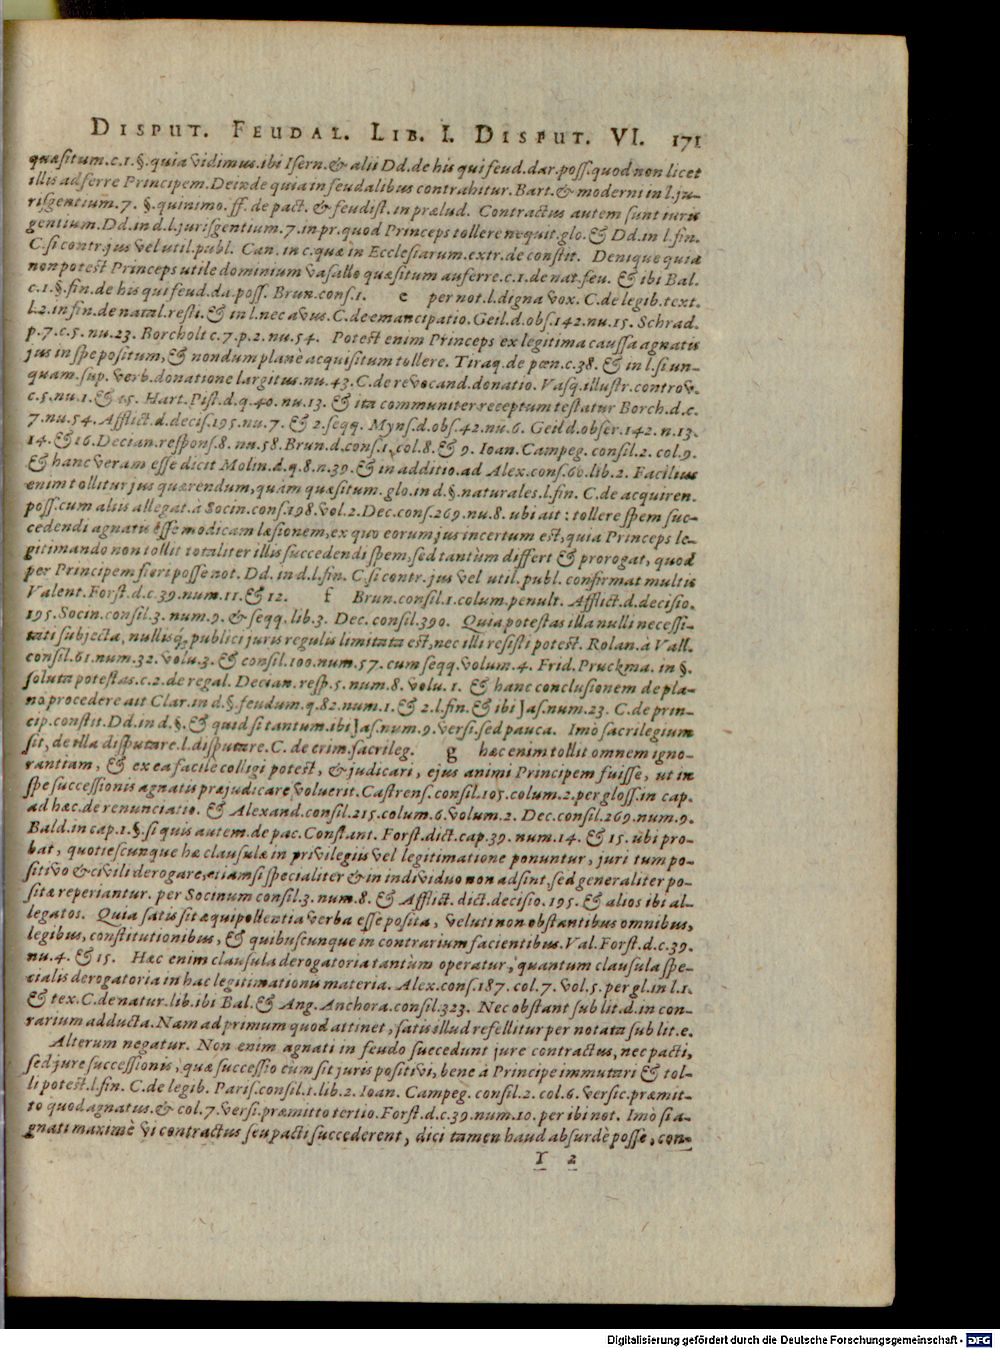 DISPUT. FEUDAL. LIB. I. DISPUT. VI. 171
quæsitum.c.1.§.quia vidimus.ibi Isern.& alii Dd.de his qui feud.dar.poss.quod non licet
illis adferre Principem.Deinde quia in feudalibus contrahitur.Bart.& moderni in l.ju-
risgentium.7. §.quinimo.ff.de pact. & feudist.in prælud. Contractus autem sunt juris
gentium.Dd.in d.l.jurisgentium.7.in pr.quod Princeps tollere nequit.glo.& Dd.in l.fin.
C.si contr.jus vel util.publ. Can.in c.quæ in Ecclesiarum.extr.de constit. Denique quia
non potest Princeps utile dominium vasallo quæsitum auferre.c.1.de nat.feu. & ibi Bal.
c.1.§.fin.de his qui feud.da.poss. Brun.cons.1. e per not.l.digna vox. C.de legib.text.
l.2.in fin.de natal.resti.& in l.nec avus.C.de emancipatio.Geil.d.obs.142.nu.15. Schrad.
p.7.c.5.nu.23. Borcholt c.7.p.2.nu.54. Potest enim Princeps ex legitima caussa agnatis
jus in spe positum,& nondum planè acquisitum tollere. Tiraq.de pœn.c.38. & in l.si un-
quam.sup. verb.donatione largitus.nu.43.C.de revocand.donatio. Vasq.illustr.controv.
c.5.nu.1.& 15. Hart.Pist.d.q.40.nu.13. & ita communiter receptum testatur Borch.d.c.
7.nu.54. Afflict.d.decis.195.nu.7. & 2.seqq. Myns.d.obs.42.nu.6. Geil d.obser.142.n.13.
14.& 16.Decian.respons.8.nu.58.Brun.d.cons.1.col.8.& 9. Ioan.Campeg.consil.2.col.9.
& hanc veram esse dicit Molin.d.q.8.n.39.& in additio.ad Alex.cons.60.lib.2. Facilius
enim tollitur jus quærendum,quàm quæsitum.glo.in d.§.naturales.l.fin. C.de acquiren.
poss.cum aliis allegat.à Socin.cons.198.vol.2.Dec.cons.269.nu.8.ubi ait : tollere spem suc-
cedendi agnatis esse modicam læsionem,ex quo eorum jus incertum est,quia Princeps le-
gitimando non tollit totaliter illis succedendi spem,sed tantùm differt & prorogat, quod
per Principem fieri posse not. Dd.in d.l.fin. C.si contr.jus vel util.publ.confirmat multis
Valent.Forst.d.c.39.num.11.& 12. f Brun.consil.1.colum.penult. Afflict.d.decisio.
195.Socin.consil.3.num.9.& seqq.lib.3. Dec.consil.390. Quia potestas illa nulli necessi-
tati subjecta, nullisq́; publici juris regulis limitata est,nec illi resisti potest. Rolan.à Vall.
consil.61.num.32.volu.3. & consil.100.num.57.cum seqq.volum.4. Frid.Pruckma. in §.
soluta potestas.c.2.de regal. Decian.resp.5.num.8. volu.1. & hanc conclusionem de pla-
no procedere ait Clar.in d.§.feudum.q.82.num.1.& 2.l.fin.& ibi Jas.num.23. C.de prin-
cip.constit.Dd.in d.§.& quid si tantum.ibi Jas.num.9.versi.sed pauca. Imò sacrilegium
sit, de illa disputare.l.disputare.C.de crim.sacrileg. g hæc enim tollit omnem igno-
rantiam, & ex ea facilè colligi potest, & judicari, ejus animi Principem fuisse, ut in
spe successionis agnatis præjudicare voluerit.Castrens.consil.105.colum.2.per gloss.in cap.
ad hæc.de renunciatio. & Alexand.consil.215.colum.6.volum.2. Dec.consil.269.num.9.
Bald.in cap.1.§.si quis autem.de pac.Constant. Forst.dict.cap.39.num.14. & 15. ubi pro-
bat, quotiescunque hæ clausulæ in privilegiis vel legitimatione ponuntur, juri tum po-
sitivo & civili derogare,etiamsi specialiter & in individuo non adsint,sed generaliter po-
sitæ reperiantur. per Socinum consil.3.num.8. & Afflict. dict.decisio.195.& alios ibi al-
legatos. Quia satis sit æquipollentia verba esse posita, veluti non obstantibus omnibus,
legibus, constitutionibus, & quibuscunque in contrarium facientibus.Val.Forst.d.c.39.
nu.4. & 15. Hæc enim clausula derogatoria tantùm operatur, quantum clausula spe-
cialis derogatoria in hac legitimationis materia. Alex.cons.187.col.7.vol.5.per gl.in l.1.
& tex.C.de natur.lib.ibi Bal.& Ang.Anchora.consil.323. Nec obstant sub lit.d.in con-
rarium adducta.Nam ad primum quod attinet, satis illud refellitur per notata sub lit.e.
Alterum negatur. Non enim agnati in feudo succedunt jure contractus, nec pacti,
sed jure successionis, quæ successio cùm sit juris positivi, bene à Principe immutari & tol-
li potest.l.fin. C.de legib. Paris.consil.1.lib.2. Ioan. Campeg.consil.2.col.6. versic.præmit-
to quod agnatus.& col.7.versi.præmitto tertio.Forst.d.c.39.num.10.per ibi not. Imò si a-
gnati maximè vi contractus seu pacti succederent, dici tamen haud absurdè posse, con-
Y 2
Digitalisierung gefördert durch die Deutsche Forschungsgemeinschaft - DFG